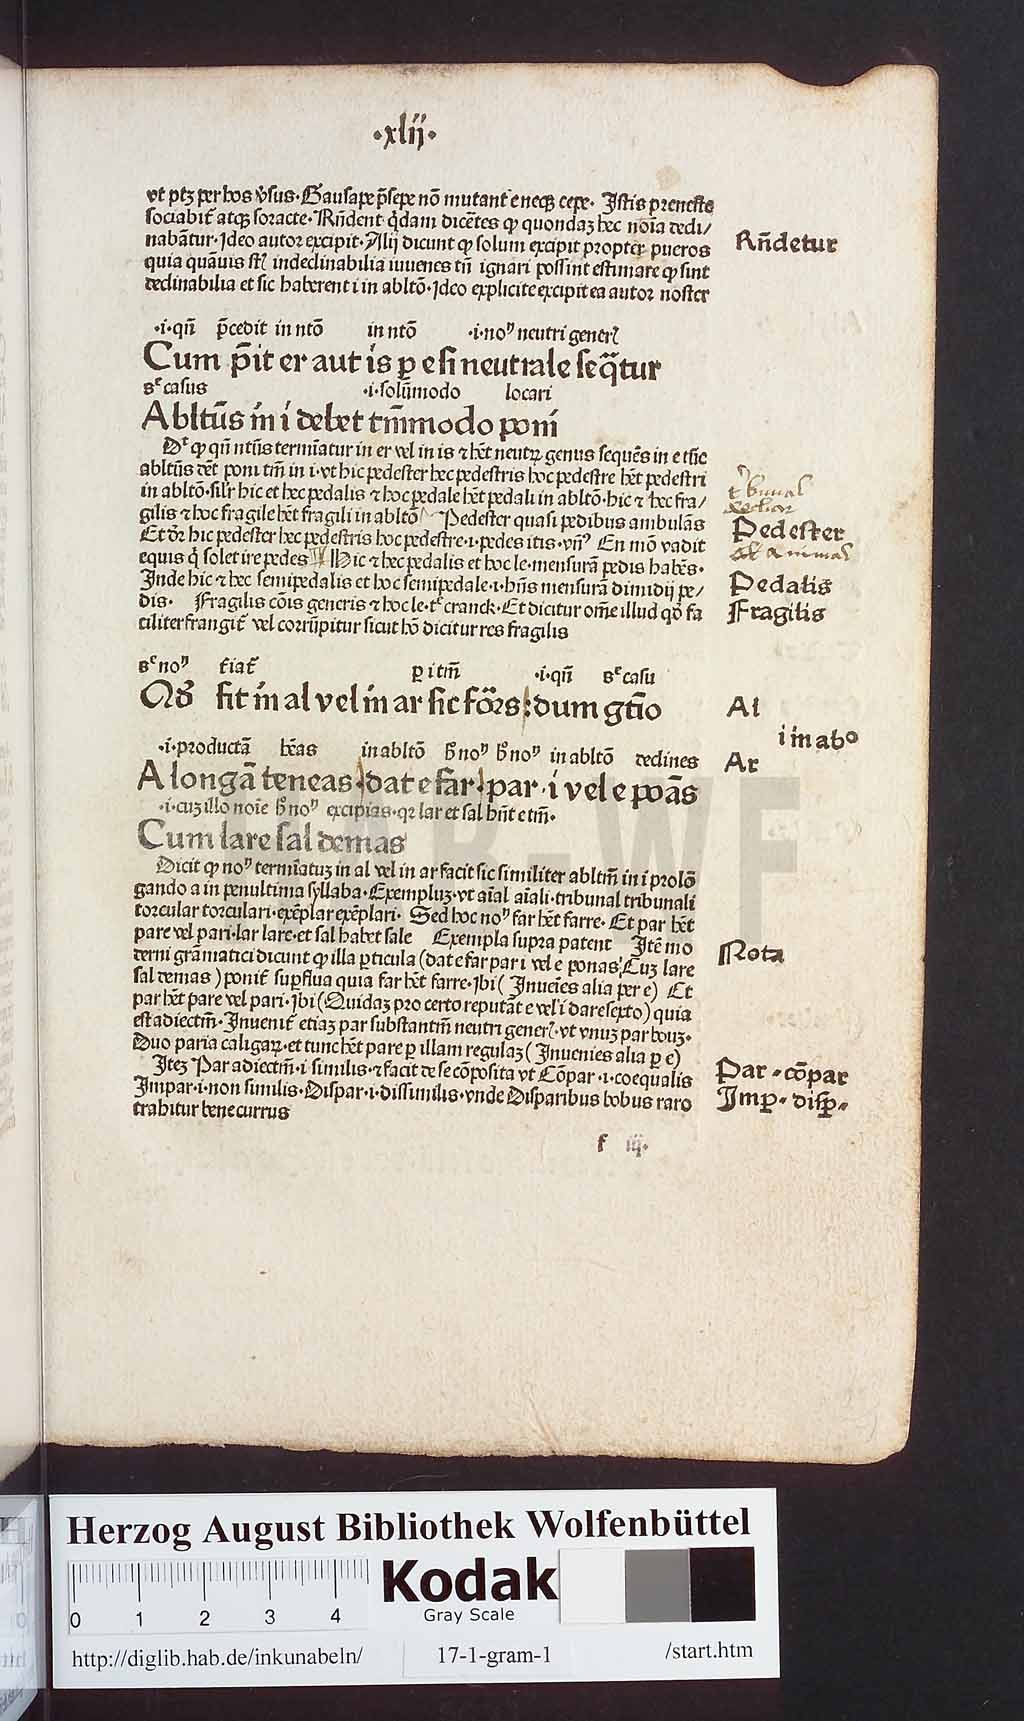 ·xlij·
vt ptꝫ per hos v̓sus. Gausape p̄sepe nō mutant̄ e neqꝫ cepe. Istis preneste
sociabit̄ atqꝫ soracte. Rn̄dent q̇dam dicētes ꝙ quondaꝫ hec nōia decli/
nabātur. Ideo autor excipit. Alij dicunt ꝙ solum excipit propter pueros
quia quāuis st̄ indeclinabilia iuuenes tn̄ ignari possint estimare ꝙ sint
declinabilia et sic haberent i in abltō. Ideo explicite excipit ea autor noster
Rn̄detur
·i·qn̄ p̄cedit in ntō in ntō ·i·noⁿ neutri generꝭ
Cum p̄it er aut is ꝑ e si neutrale seq̄tur
sᶜ casus ·i·solūmodo locari
Abltūs in i debet tm̄modo poni
Dꝛ ꝙ qn̄ ntūs termīatur in er vel in is ⁊ hēt neutꝝ genus sequēs in e tūc
abltūs dēt poni tm̄ in i. vt hic pedester hec pedestris hoc pedestre hēt pedestri
in abltō. silr̄ hic et hec pedalis ⁊ hoc pedale hēt pedali in abltō. hic ⁊ hec fra/
gilis ⁊ hoc fragile hēt fragili in abltō Pedester quasi pedibus ambulās
Et dr̄ hic pedester hec pedestris hoc pedestre .i. pedes itis. vn̄ En mō vadit
equis q̇ solet ire pedes Hic ⁊ hec pedalis et hoc le. mensurā pedis habēs.
Inde hic ⁊ hec semipedalis et hoc semipedale .i. hn̄s mensurā dimidij pe/
dis. Fragilis cōis generis ⁊ hoc le. tᶜ cranck. Et dicitur om̄e illud qd̄ fa
ciliter frangit̄ vel corrūpitur sicut hō dicitur res fragilis
Pedester
Pedalis
Fragilis
sᶜ noⁿ t̄iat̄ ꝑ i tm̄ ·i·qn̄ sᶜ casu
Qd̄ fit in al vel in ar sic fōrs: dum gtīo
·i·productā hēas in abltō h̄ noⁿ h̄ noⁿ in abltō declines
A longā teneas. dat e far. par. i vel e poās
·i·cuꝫ illo noīe h̄ noⁿ excipias. qꝛ lar et sal hn̄t e tm̄.
Cum lare sal demas
Al
i in abᵒ
Ar
Dicit ꝙ noⁿ termīatuꝫ in al vel in ar facit sic similiter abltm̄ in i prolō
gando a in penultima syllaba. Exempluꝫ. vt aīal aīali. tribunal tribunali
torcular torculari. exēplar exēplari. Sed hoc noⁿ far hēt farre. Et par hēt
pare vel pari. lar lare. et sal habet sale Exempla supra patent Itē mo
derni grāmatici dicunt ꝙ illa ꝑticula (dat e far par i vel e ponas Cuꝫ lare
sal demas) ponit̄ suꝑflua quia far hēt farre. Ibi (Inueīes alia per e) Et
par hēt pare vel pari. Ibi (Quidaꝫ pro certo reputāt e vel i dare septo) quia
est adiectm̄. Inuenit̄ etiaꝫ par substantm̄ neutri generꝭ. vt vnuꝫ par bouꝫ.
Duo paria caligaꝝ. et tunc hēt pare ꝑ illam regulaꝫ (Inuenies alia ꝑ e)
Iteꝫ Par adiectm̄. i similis ⁊ facit de se cōposita vt Cōpar .i. coequalis
Impar .i. non similis. Dispar .i. dissimilis. vnde Disparibus bobus raro
trahitur bene currus
Nota
Par. cōpar
Imꝑ. disꝑ.
f iij.
Herzog August Bibliothek Wolfenbüttel
Kodak
Gray Scale
0 1 2 3 4
http://diglib.hab.de/inkunabeln/ 17-1-gram-1 /start.htm